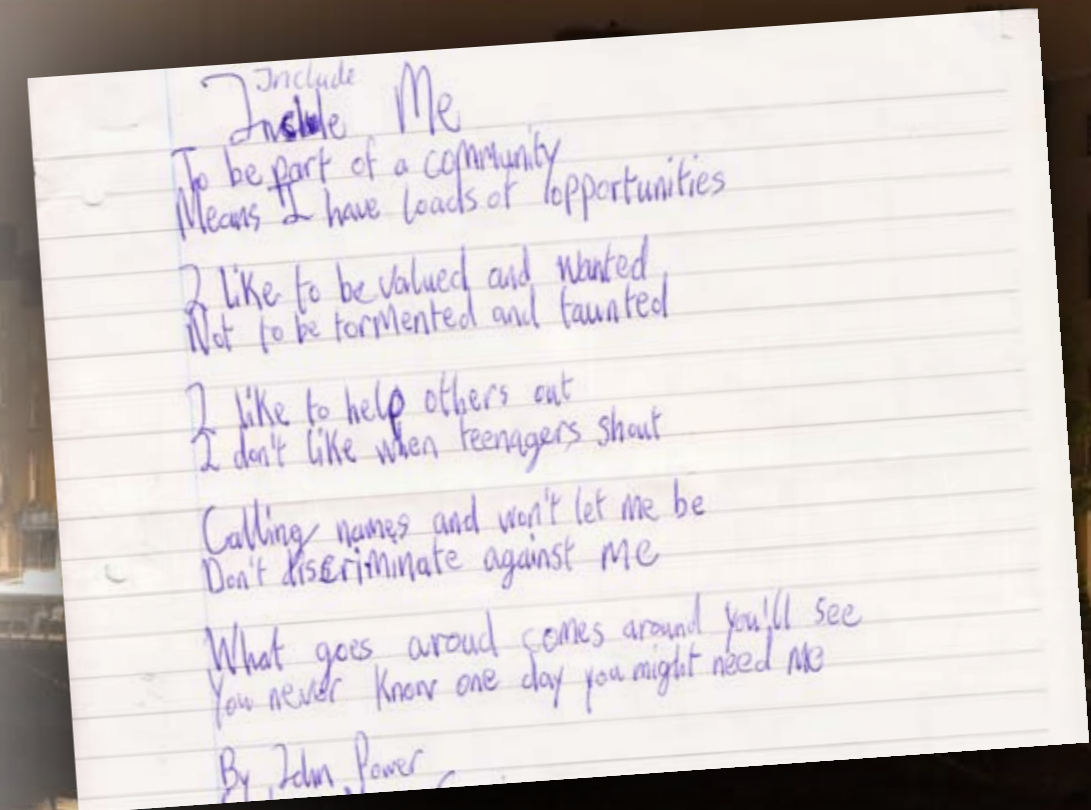 Include
Include Me
To be part of a community
Means I have loads of opportunities
I like to be valued and wanted
Not to be tormented and taunted
I like to help others out
I don't like when teenagers shout
Calling names and won't let me be
Don't discriminate against me
What goes aroud comes around you'll see
You never know one day you might need me
By John Power